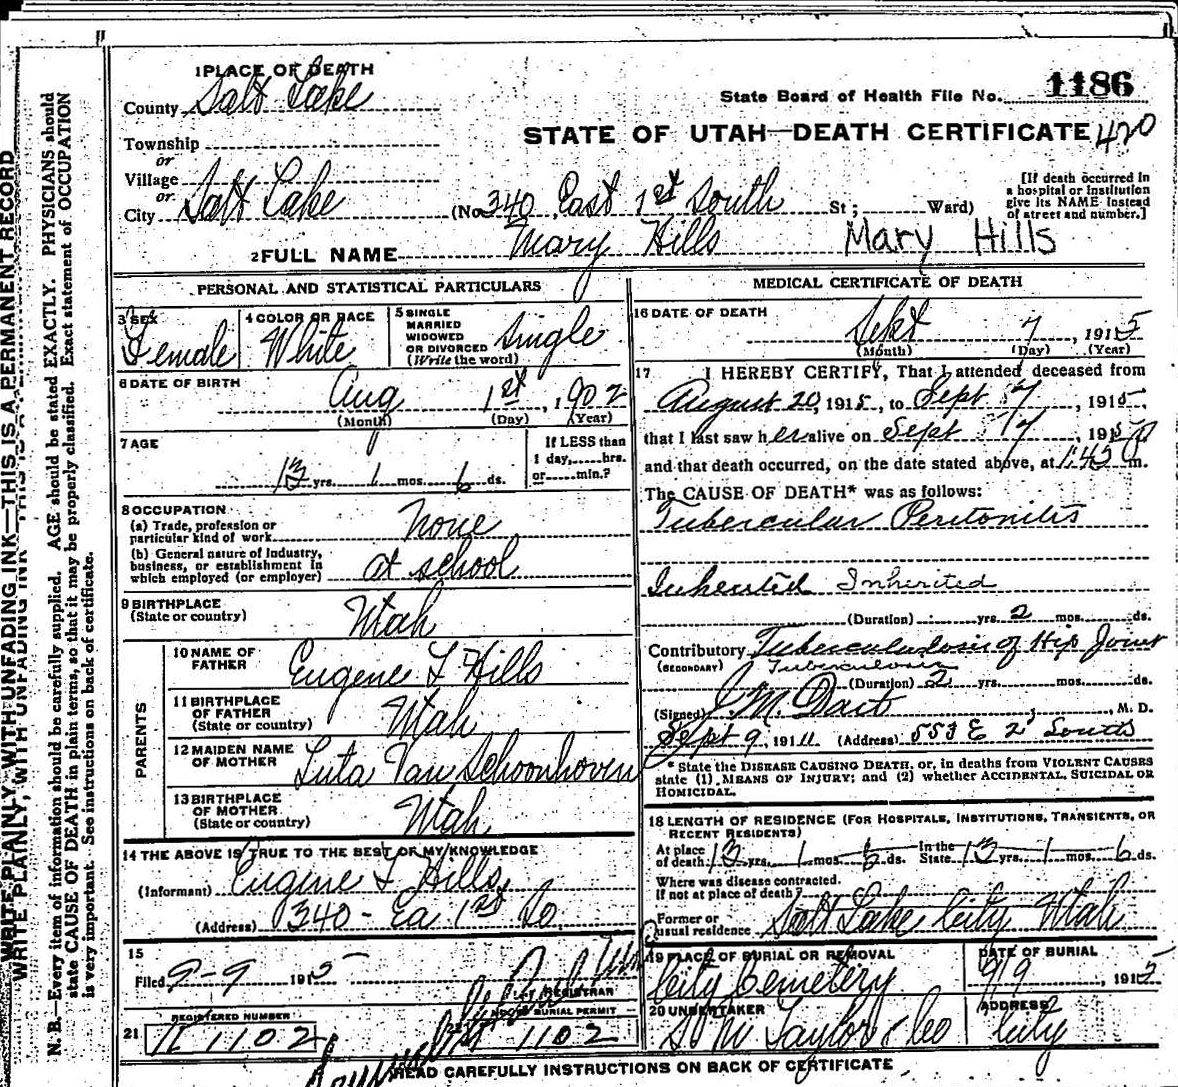 1 PLACE OF DEATH
County Salt Lake
State Board of Health File No. 1186
STATE OF UTAH—DEATH CERTIFICATE 420
Township
or
Village
or
City Salt Lake (No. 340 East 1st South St; Ward)
[If death occurred in
a hospital or institution
give its NAME instead
of street and number.]
2 FULL NAME Mary Hills Mary Hills
PERSONAL AND STATISTICAL PARTICULARS
3 SEX
Female
4 COLOR OR RACE
White
5 SINGLE
MARRIED
WIDOWED
OR DIVORCED
(Write the word)
Single
6 DATE OF BIRTH
Aug 1st, 1902
(Month) (Day) (Year)
7 AGE
13 yrs. 1 mos. 6 ds.
If LESS than
1 day, hrs.
or min.?
8 OCCUPATION
(a) Trade, profession or
particular kind of work None
(b) General nature of Industry,
business, or establishment in
which employed (or employer) at school
9 BIRTHPLACE
(State or country) Utah
PARENTS
10 NAME OF
FATHER Eugene T Hills
11 BIRTHPLACE
OF FATHER
(State or country) Utah
12 MAIDEN NAME
OF MOTHER Luta Van Schoonhoven
13 BIRTHPLACE
OF MOTHER
(State or country) Utah
14 THE ABOVE IS TRUE TO THE BEST OF MY KNOWLEDGE
(Informant) Eugene T Hills
(Address) 340 - Ea 1st So
15
Filed 9-9 1915
REGISTRAR
21 REGISTERED NUMBER
1102
BURIAL PERMIT
1102
MEDICAL CERTIFICATE OF DEATH
16 DATE OF DEATH
Sept 7, 1915
(Month) (Day) (Year)
17 I HEREBY CERTIFY, That I attended deceased from
August 20, 1915, to Sept 7, 1915,
that I last saw her alive on Sept 7, 1915
and that death occurred, on the date stated above, at 1:45 m.
The CAUSE OF DEATH* was as follows:
Tubercular Peritonitis
Inherited Inherited
(Duration) yrs. 2 mos. ds.
Contributory Tuberculosis of Hip Joint
(SECONDARY) Tuberculosis
(Duration) 2 yrs. mos. ds.
(Signed) M. D.
Sept 9, 191 (Address) 553 E 2 South
* State the DISEASE CAUSING DEATH, or, in deaths from VIOLENT CAUSES
state (1) MEANS OF INJURY; and (2) whether ACCIDENTAL, SUICIDAL OR
HOMICIDAL.
18 LENGTH OF RESIDENCE (FOR HOSPITALS, INSTITUTIONS, TRANSIENTS, OR
RECENT RESIDENTS)
At place
of death 13 yrs. 1 mos. 6 ds. In the
State 13 yrs. 1 mos. 6 ds.
Where was disease contracted.
If not at place of death?
Former or
usual residence Salt Lake City Utah
19 PLACE OF BURIAL OR REMOVAL
City Cemetery
DATE OF BURIAL
9/9, 1915
20 UNDERTAKER
Taylor & Co
ADDRESS
City
READ CAREFULLY INSTRUCTIONS ON BACK OF CERTIFICATE
WRITE PLAINLY, WITH UNFADING INK—THIS IS A PERMANENT RECORD
N. B.—Every item of information should be carefully supplied. AGE should be stated EXACTLY. PHYSICIANS should
state CAUSE OF DEATH in plain terms, so that it may be properly classified. Exact statement of OCCUPATION
is very important. See instructions on back of certificate.